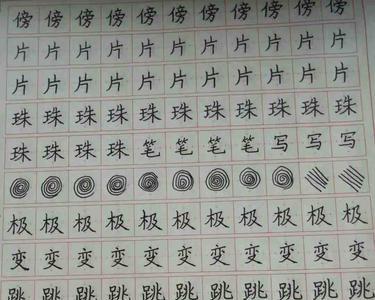 傍傍傍傍傍傍傍傍傍傍傍
片片片片片片片片片片片
片片片片片片片片片片片
珠珠珠珠珠珠珠珠珠珠珠
珠珠珠珠笔笔笔笔写写写
极极极极极极极极极极极
变变变变变变变变变变变
跳跳跳跳跳跳跳跳跳跳跳